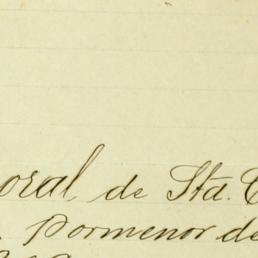 oral de Sta. C
Pormenor de